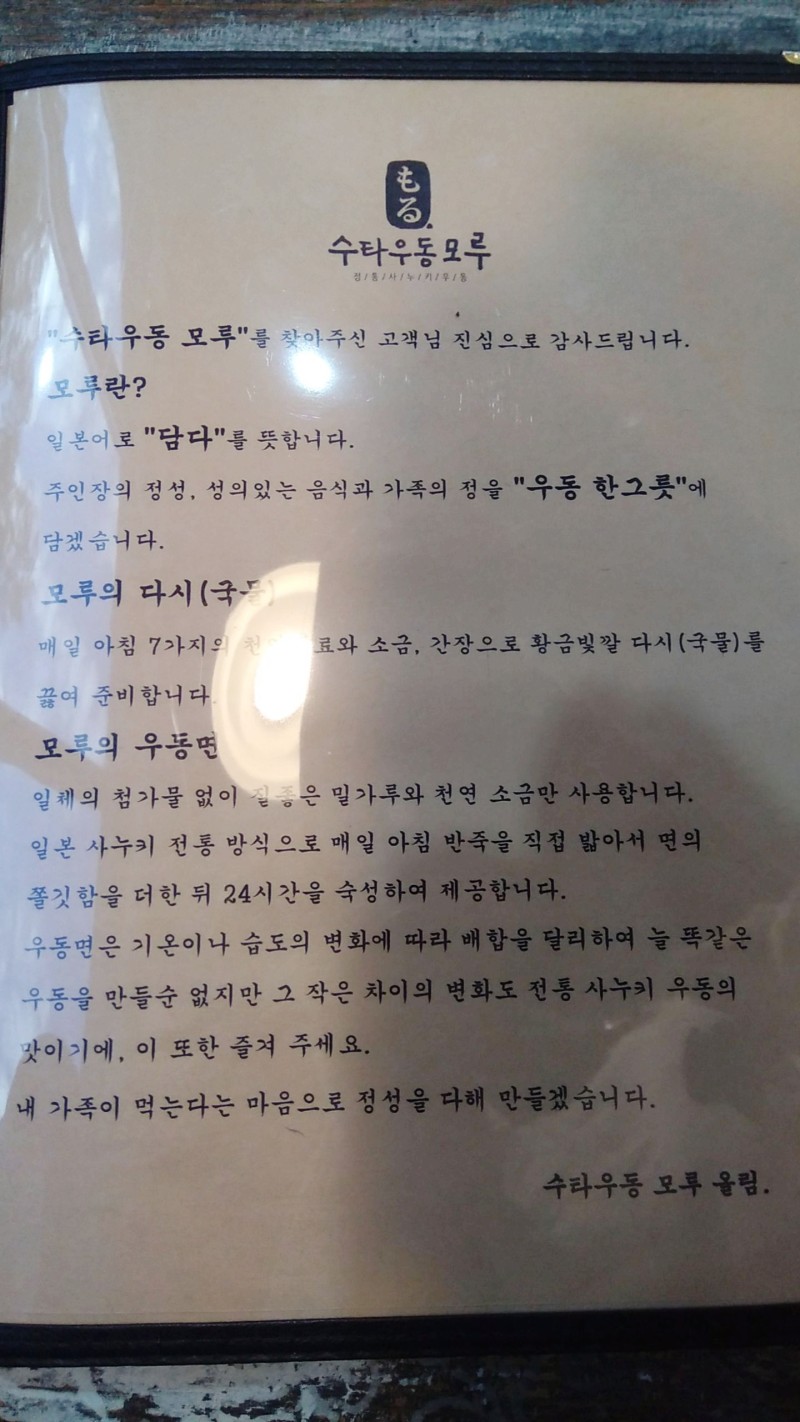 もる
수타우동 모루
정/통/사/누/키/우/동
"수타우동 모루"를 찾아주신 고객님 진심으로 감사드립니다.
모루란?
일본어로 "담다"를 뜻합니다.
주인장의 정성, 성의있는 음식과 가족의 정을 "우동 한그릇"에
담겠습니다.
모루의 다시(국물)
매일 아침 7가지의 천연재료와 소금, 간장으로 황금빛깔 다시(국물)를
끓여 준비합니다.
모루의 우동면
일체의 첨가물 없이 질좋은 밀가루와 천연 소금만 사용합니다.
일본 사누키 전통 방식으로 매일 아침 반죽을 직접 밟아서 면의
쫄깃함을 더한 뒤 24시간을 숙성하여 제공합니다.
우동면은 기온이나 습도의 변화에 따라 배합을 달리하여 늘 똑같은
우동을 만들순 없지만 그 작은 차이의 변화도 전통 사누키 우동의
맛이기에, 이 또한 즐겨 주세요.
내 가족이 먹는다는 마음으로 정성을 다해 만들겠습니다.
수타우동 모루 올림.